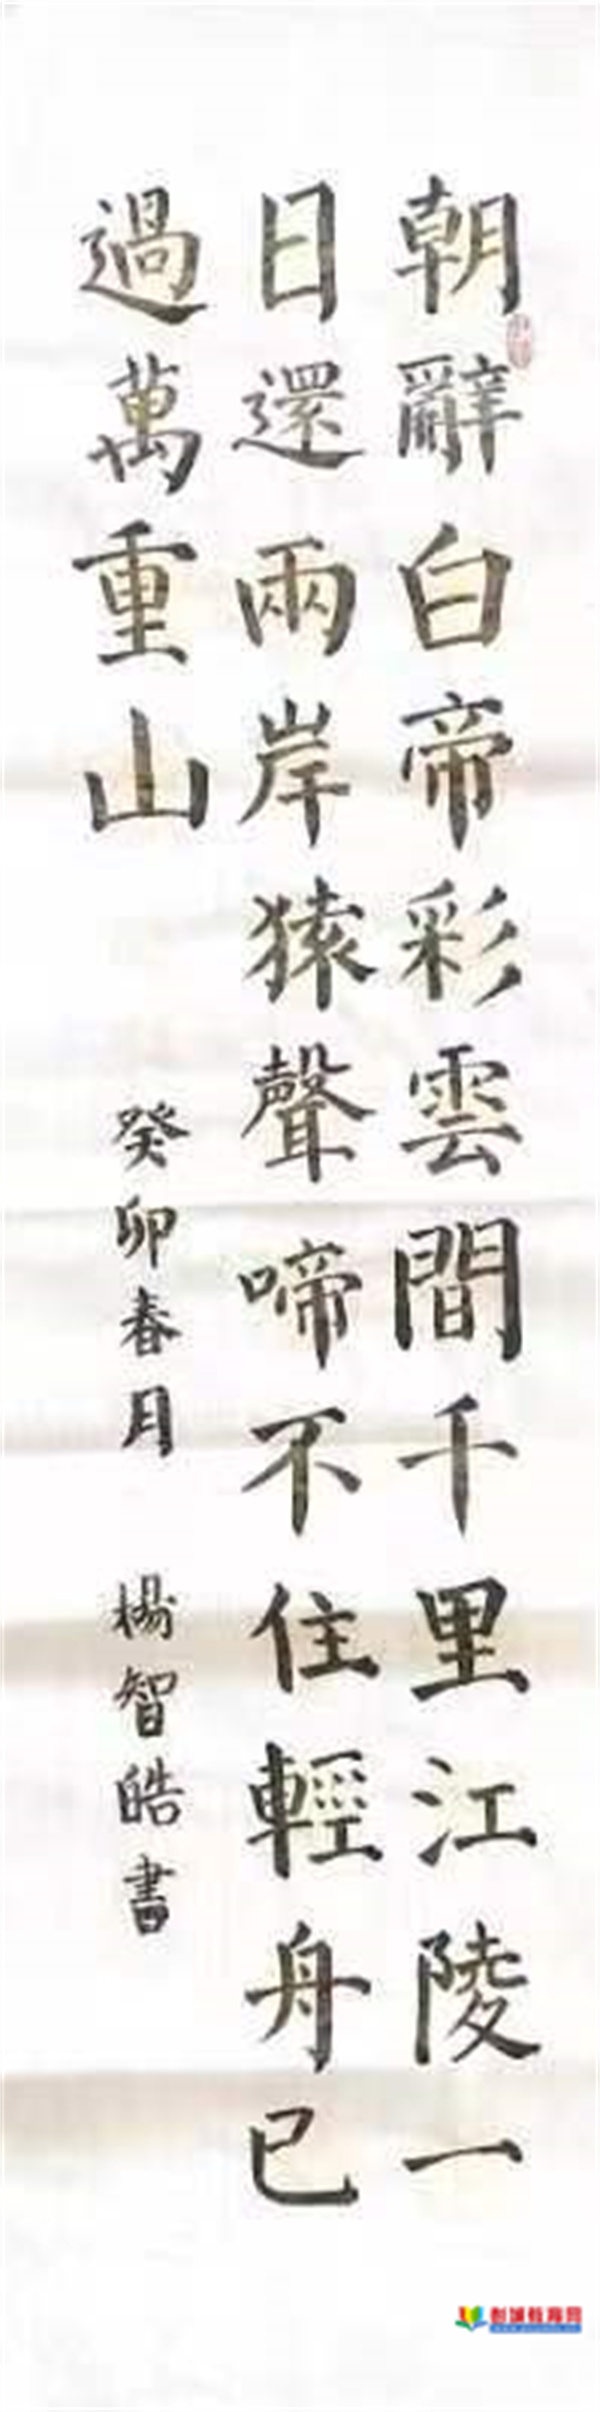 朝辭白帝彩雲間千里江陵一
日還兩岸猿聲啼不住輕舟已
過萬重山
癸卯春月 楊智皓書